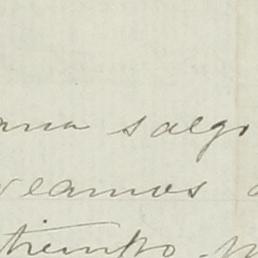 ana salgo
veamos
tiempo